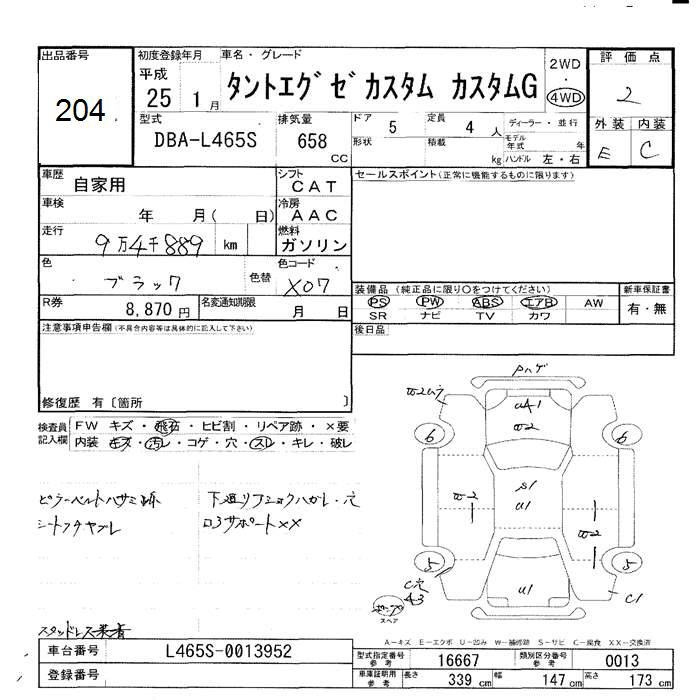 出品番号
204
初度登録年月
平成
25 1月
車名・グレード
タントエグゼ カスタム カスタムG
2WD
・
4WD
評価点
2
外装 内装
E C
型式
DBA-L465S
排気量
658
CC
ドア
5
定員
4人
形状
積載
kg
ディーラー・並行
モデル年式 年
ハンドル 左・右
車歴
自家用
シフト
CAT
車検
年 月( 日)
冷房
AAC
走行
9万4千889 km
燃料
ガソリン
色
ブラック
色替
色コード
X07
R券
8,870円
名変通知期限
月 日
セールスポイント(正常に機能するものに限ります)
装備品(純正品に限り○をつけてください)
PS PW ABS エアB AW
SR ナビ TV カワ
新車保証書
有・無
後日品
注意事項申告欄(不具合内容等は具体的に記入して下さい)
修復歴 有〔箇所 〕
検査員記入欄
FW キズ・飛石・ヒビ割・リペア跡・×要
内装 キズ・汚レ・コゲ・穴・スレ・キレ・破レ
ピラーベルトハサミ跡
シートフチヤブレ
下廻り
ロ3サポートXX
スタッドレス装着
ハゲ
W2
U1
6
6
W2
S1
U1
W2
5
5
C穴
A3
U1
C1
スペア
A-キズ E-エクボ U-凹み W-補修跡 S-サビ C-腐食 XX-交換済
車台番号
L465S-0013952
登録番号
型式指定番号
参考
16667
類別区分番号
参考
0013
車庫証明用
参考
長さ
339 cm
幅
147 cm
高さ
173 cm